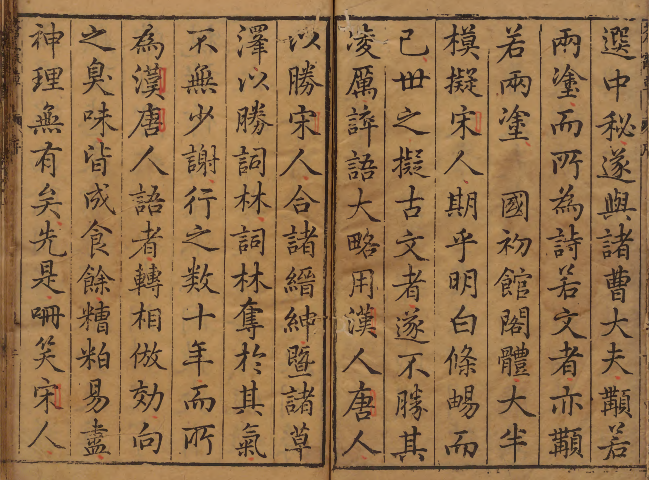 選中秘遂與諸曹大夫顜若
兩塗而所為詩若文者亦顜
若兩塗 國初館閣體大半
模擬宋人期乎明白條暢而
已世之擬古文者遂不勝其
凌厲誶語大略用漢人唐人
以勝宋人合諸縉紳暨諸草
澤以勝詞林詞林奪於其氣
不無少謝行之数十年而所
為漢唐人語者轉相倣効向
之臭味皆成食餘糟粕易盡
神理無有矣先是哂笑宋人